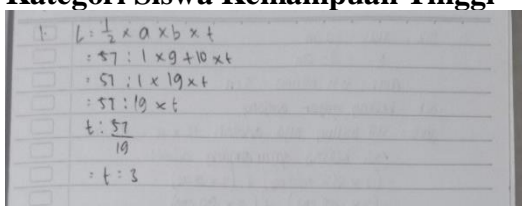 Kategori Siswa Kemampuan Tinggi
1. L = 1/2 × a × b × t
= 57 : 1 × 9 + 10 × t
= 57 : 1 × 19 × t
= 57 : 19 × t
t : 57/19
= t : 3